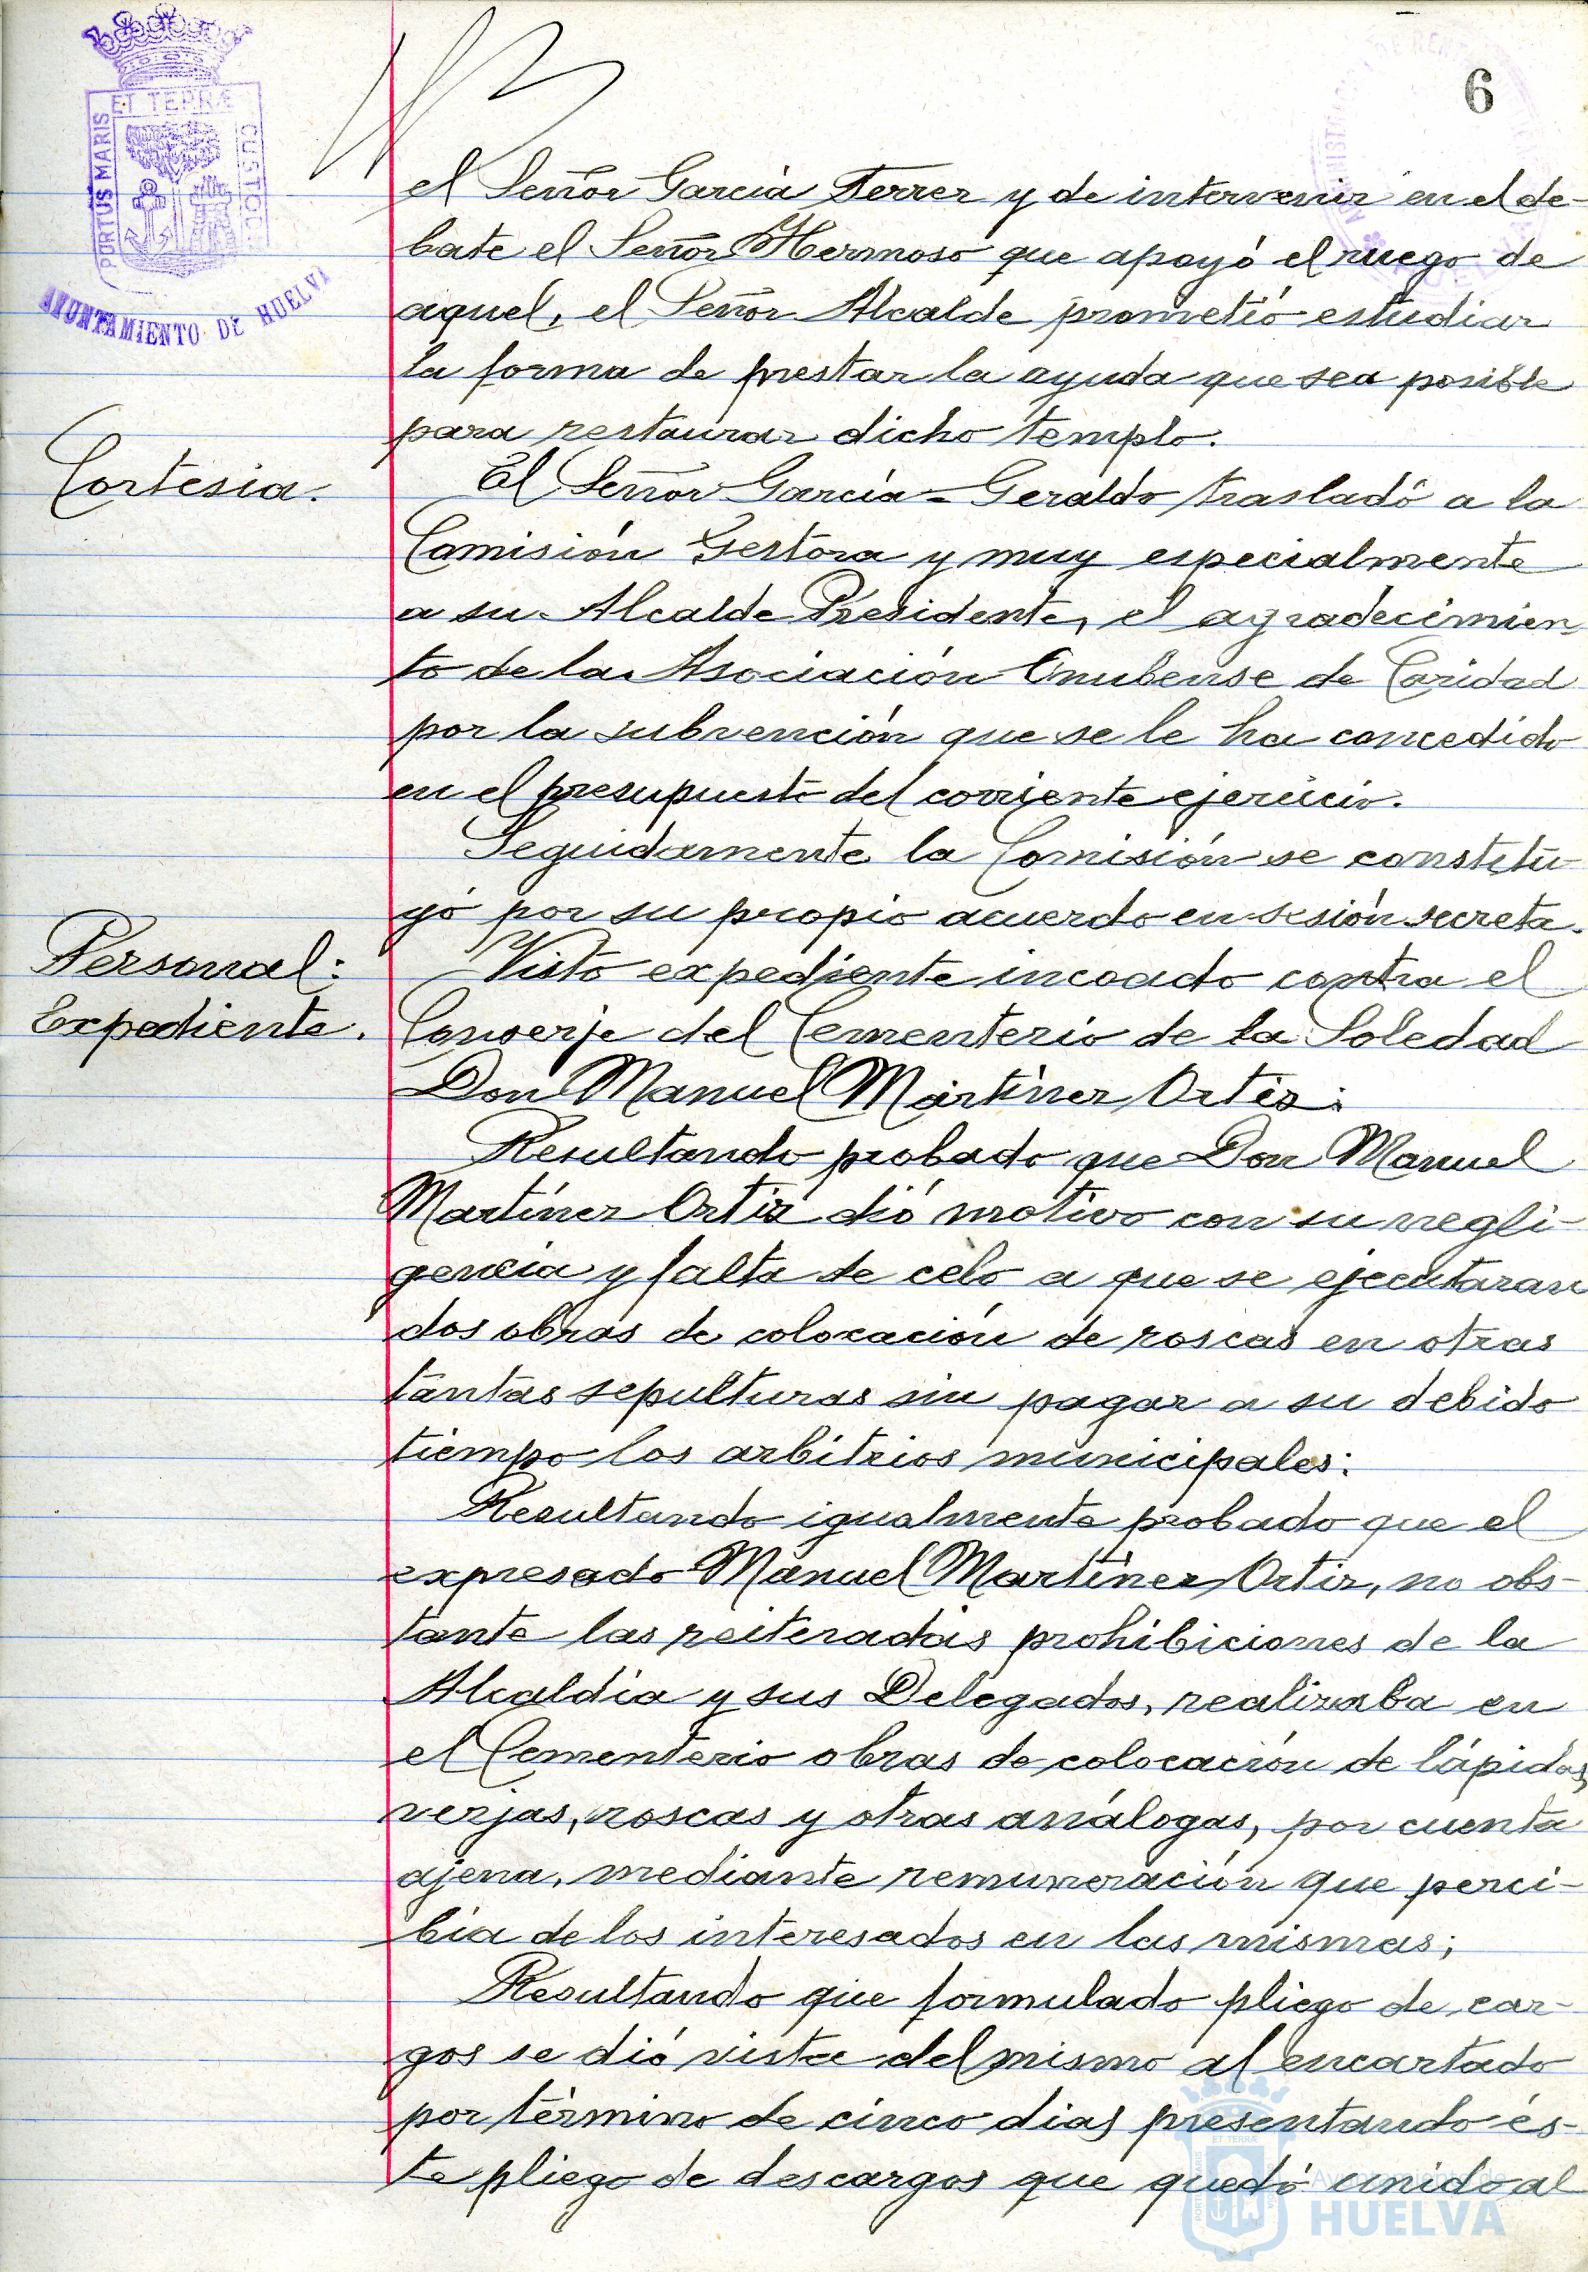 6
PORTUS MARIS
ET TERRÆ
CUSTODI
AYUNTAMIENTO DE HUELVA
el Señor García Ferrer y de intervenir en el de-
bate el Señor Hermoso que apoyó el ruego de
aquel, el Señor Alcalde prometió estudiar
la forma de prestar la ayuda que sea posible
para restaurar dicho templo.
Cortesia.
El Señor Garcia-Geraldo trasladó a la
Comisión Gestora y muy especialmente
a su Alcalde Presidente, el agradecimien
to de la Asociación Onubense de Caridad
por la subvención que se le ha concedido
en el presupuesto del corriente ejercicio.
Seguidamente la Comisión se constitu-
yó por su propio acuerdo en sesión secreta.
Personal:
Expediente.
Visto expediente incoado contra el
Conserje del Cementerio de la Soledad
Don Manuel Martínez Ortiz:
Resultando probado que Don Manuel
Martínez Ortiz dió motivo con su negli-
gencia y falta de celo a que se ejecutaran
dos obras de colocación de roscas en otras
tantas sepulturas sin pagar a su debido
tiempo los arbitrios municipales:
Resultando igualmente probado que el
expresado Manuel Martínez Ortiz, no obs-
tante las reiteradas prohibiciones de la
Alcaldía y sus Delegados, realizaba en
el Cementerio obras de colocación de lápidas,
verjas, roscas y otras análogas, por cuenta
ajena, mediante remuneración que perci-
bia de los interesados en las mismas;
Resultando que formulado pliego de car-
gos se dió vista del mismo al encartado
por término de cinco dias presentando és-
te pliego de descargos que quedó unido al
Ayuntamiento de
HUELVA